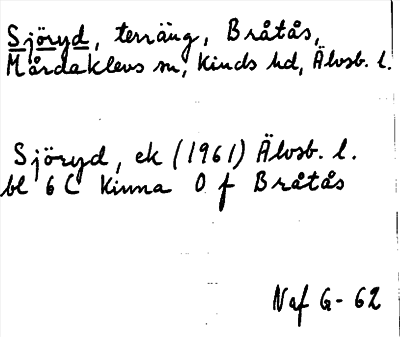 Sjöryd, terräng, Bråtås,
Mårdaklevs sn, Kinds hd, Älvsb. l.
Sjöryd, ek (1961) Älvsb. l.
bl 6 C Kinna O f Bråtås
Naf G-62